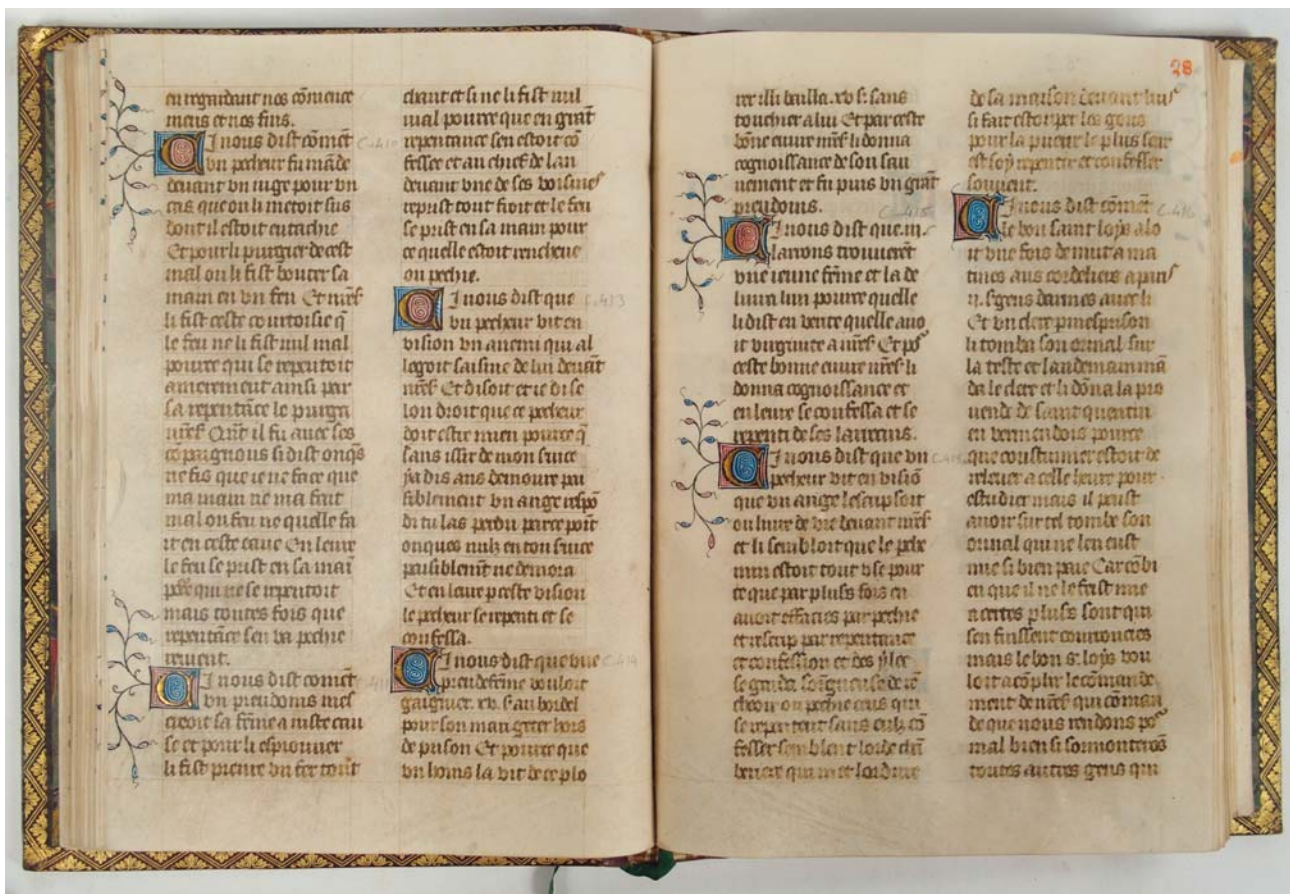 en regardant nos cōmence
mens et nos fins.
Ci nous dist cōmēt
vn pecheur fu māde
deuant vn iuge pour vn
cas que on li metoit sus
dont il estoit entachie
Et pour li purgier de cest
mal on li fist bouter sa
main en vn feu Et
li fist ceste courtoisie q̄
le feu ne li fist nul mal
pource qui se repentoit
amerement ainsi par
sa repentāce le purga
il fu auec ses
cōpaignons si dist onq̄s
ne fis que ie ne face que
ma main ne ma fait
mal ou feu ne quelle fa
it en ceste eaue En leure
le feu se prist en sa mai
qui ne se repentoit
mais toutes fois que
repentāce sen va pechie
reuient.
Ci nous dist cōmēt
vn preudoms mes
creoit sa fēme a iuste cau
se et pour li esprouuer
li fist prenre vn fer tout
chaut et si ne li fist nul
mal pource que en grāt
repentance sen estoit cō
fessee et au chief de lan
deuant vne de ses voisines
reprist tout froit et le feu
se prist en sa main pour
ce quelle estoit rencheue
ou pechie.
Ci nous dist que C.413
vn pecheur vit en
vision vn anemi qui al
legoit saisine de lui deuāt
Et disoit et ie di se
lon droit que ce pecheur
doit estre mien pource q̄
sans issir de mon seruice
ya dis ans demoure pai
siblement vn ange respō
di tu las perdu parce point
onques nulz en ton seruice
paisiblemēt ne demora
Et en leure p ceste vision
le pecheur se repenti et se
confessa.
Ci nous dist que vne C.414
preudefēme vouloit
gaignier .xv. s. au bordel
pour son mari geter hors
de prison Et pource que
vn homs la vit de ce plo
28
rer illi bailla .xv s. sans
touchier a lui Et par ceste
bōne euure li donna
cognoissance de son sau
uement et fu puis vn grāt
preudoms. C.415
Ci nous dist que .iii.
larrons trouuerēt
vne ieune fēme et la de
liura lun pource quelle
li dist en verite quelle auo
it virginite a Et
ceste bonne euure li
donna cognoissance et
en leure se confessa et se
repenti de ses larrecins.
Ci nous dist que vn
pecheur vit en visiō
que vn ange lescripsoit
ou liure de vie deuant
et li sembloit que le
min estoit tout vse pour
ce que par plus fois en
auoit effacies par pechie
et rescrip par repentance
et confession et des
se garda songneuse de re
cheoir ou pechie ceus qui
se repentent sans eulz cō
fesser semblent
qui met lordure
de sa maison deuant huis
si fait estouper les gens
pour la pueur le plus seur
est soy repentir et confesser
souuent.
Ci nous dist cōmēt C.416
le bon saint loys alo
it vne fois de nuit a ma
tines aus cordeliers a paris
.ii. sgens darmes auec li
Et vn clerc p mesprison
li tomba son orinal sur
la teste et lendemain mā
da le clerc et li dōna la pro
uende de saint quentin
en vermendois pource
que coustumier estoit de
releuer a celle heure pour
estudier mais il peust
auoir sur tel tombe son
orinal qui ne len eust
mie si bien paie Car cōbi
en que il ne le feist mie
a certes plus sont qui
sen fussent courroucies
mais le bon s. loys vou
loit acōplir le cōmande
ment de qui cōman
de que nous rendons
mal bien si sormonterōs
toutes autres gens qui